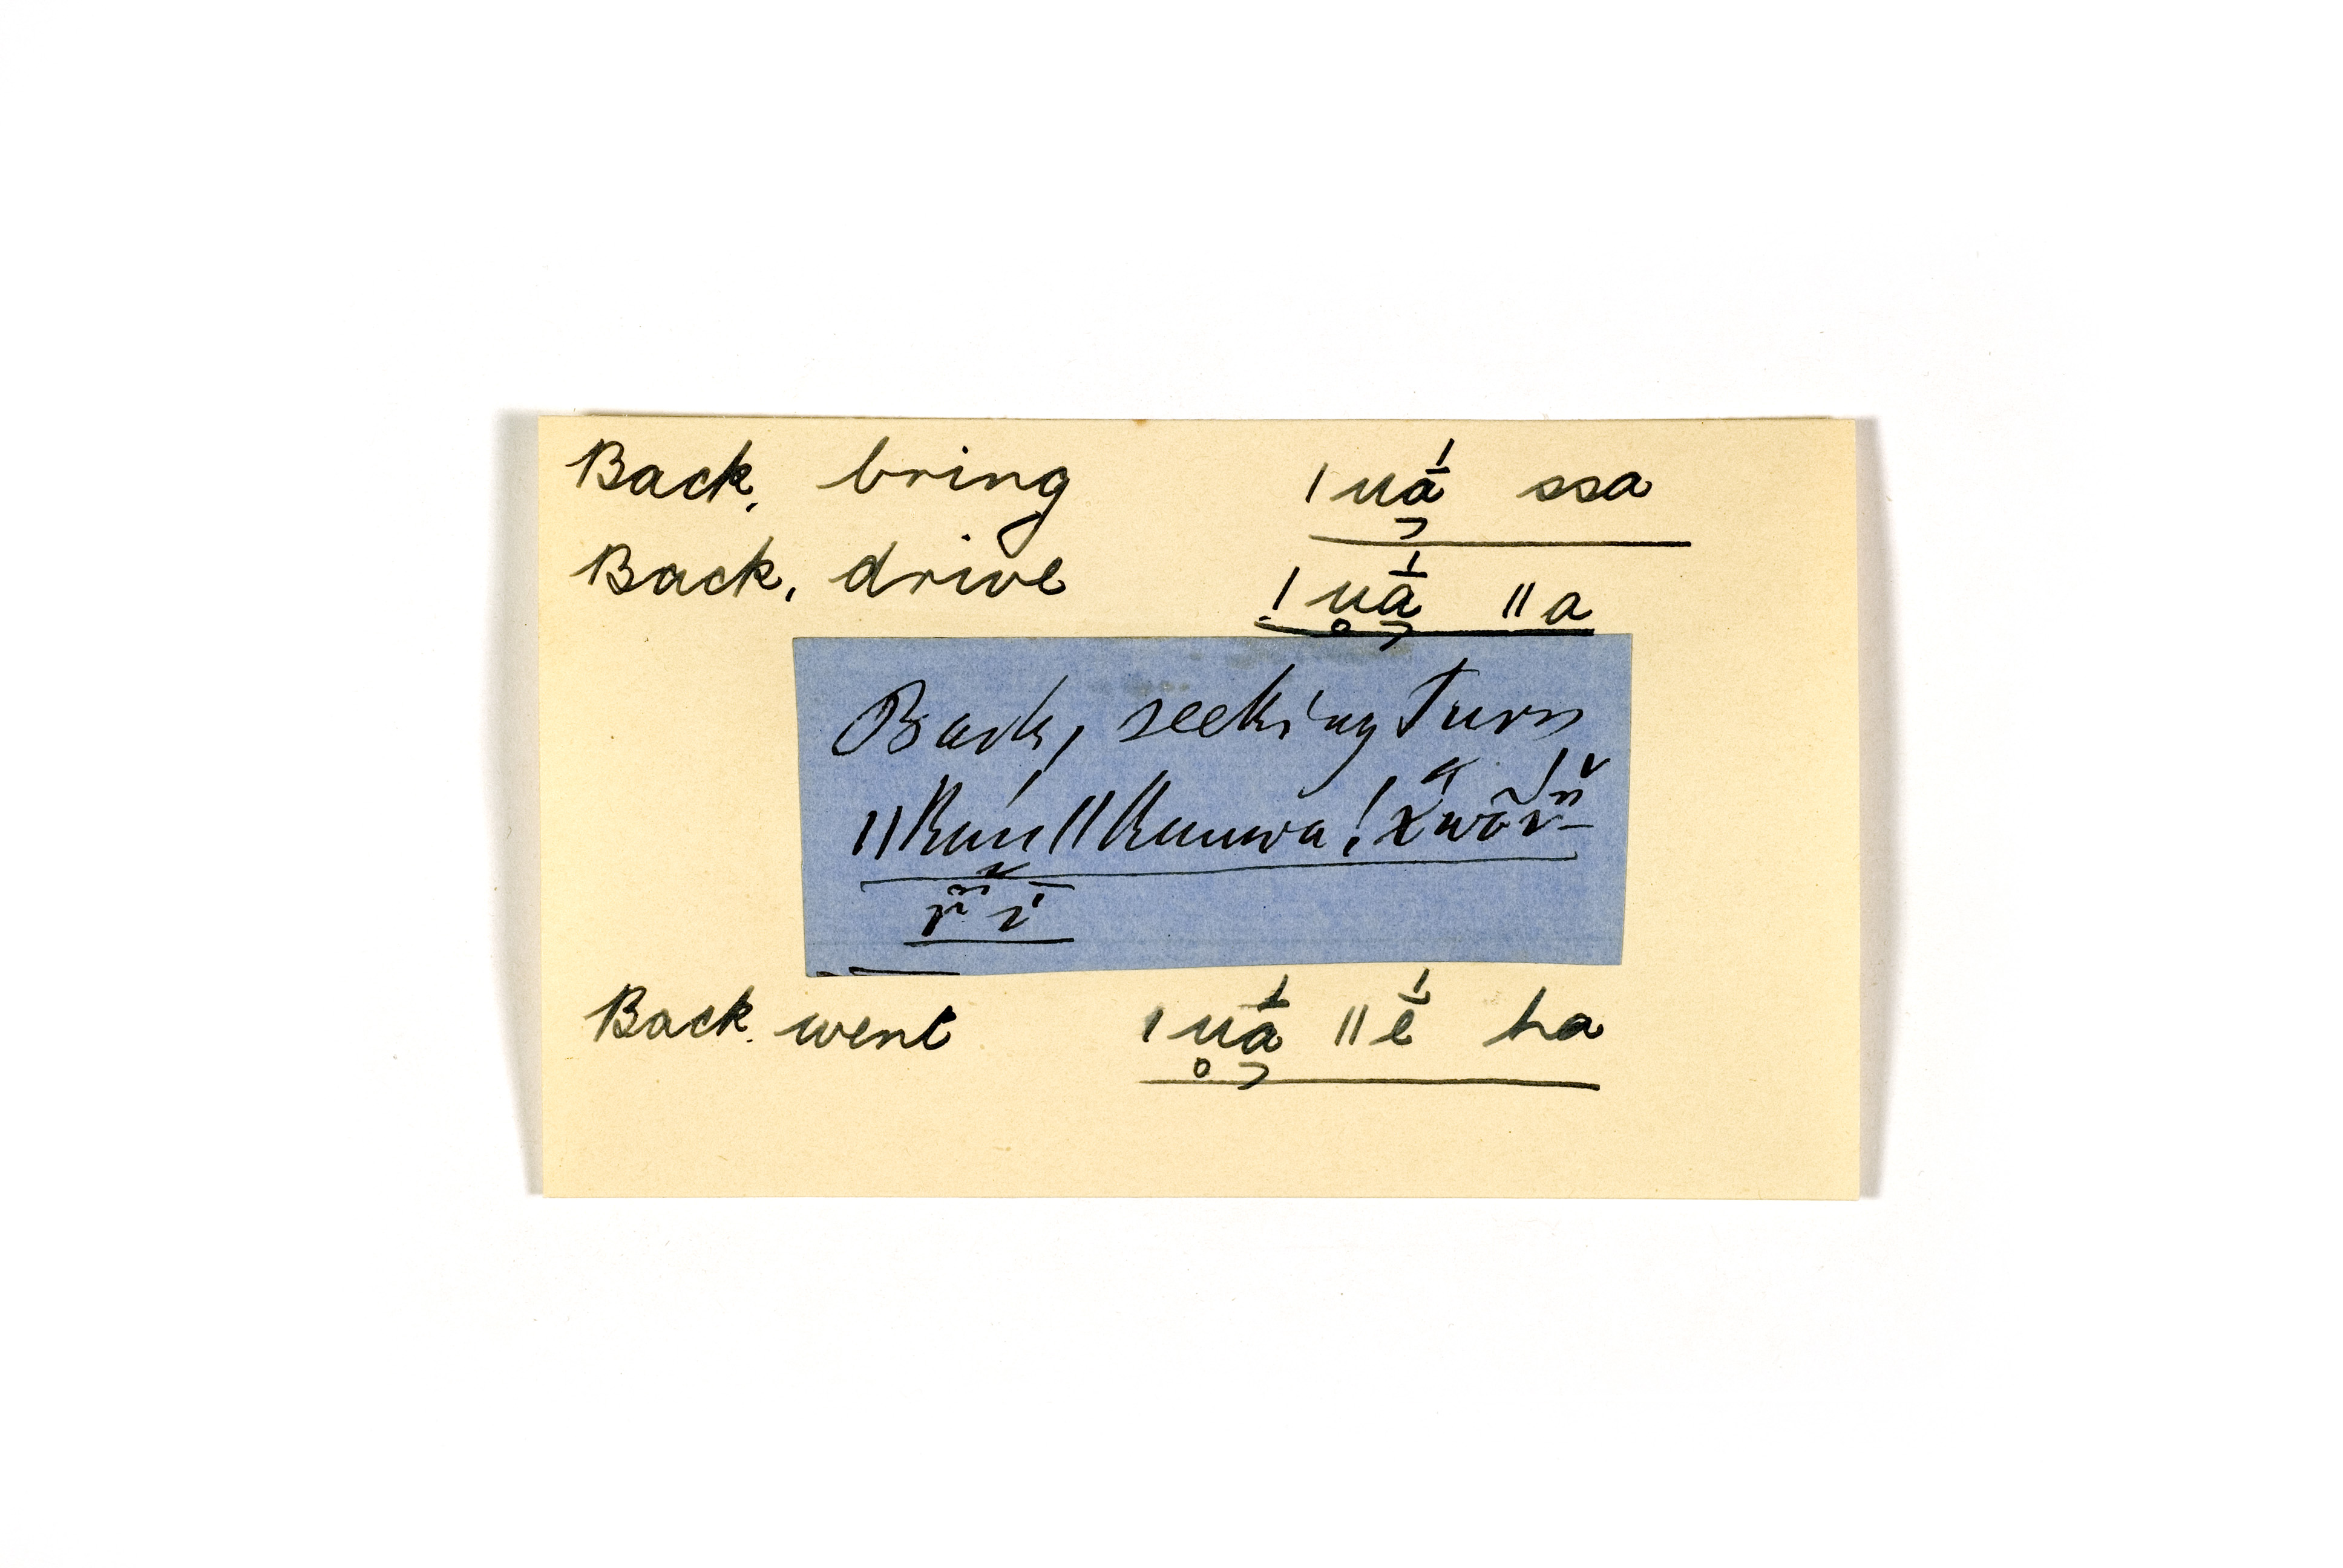 Back, bring ǀuā́ ssa
Back, drive ǃuā́ ǁa
Back, seeking turn
ǁKuń ǁKuuwa ǃxwãr̆-
r̆ĩ
Back. went ǀuā́ ǁé̄ ha